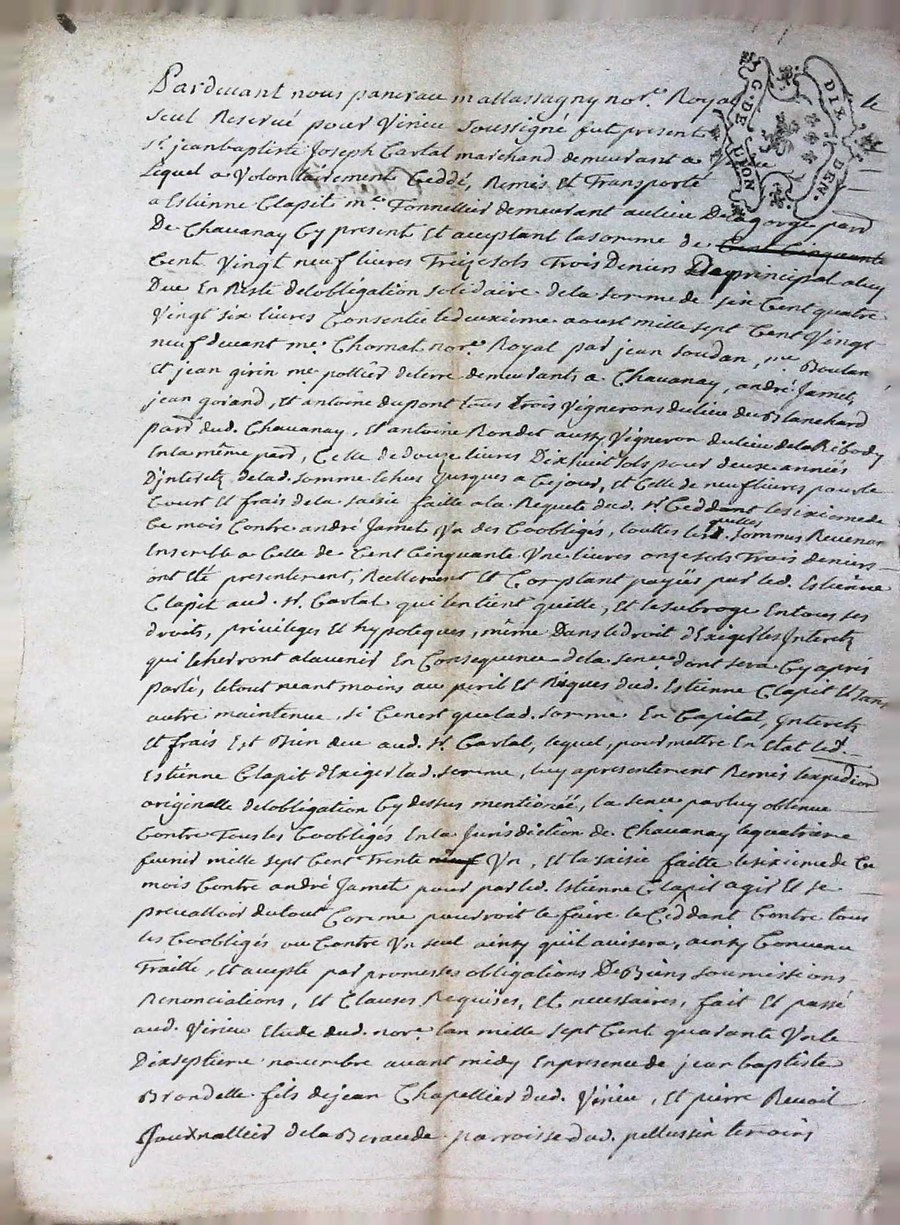 Pardevant nous pancrace mattassagny nore. Royal le
seul Reservé pour Virieu soussigné fut present
sr. jean baptiste Joseph Cartal marchand demeurant a
Lequel a volontairement Ceddé, Remis Et Transporté
a Estienne Clapit me. Tonnellier demeurant au lieu de la gorge parr
De Chavanay Cy present Et aceptant la somme de Cent Cinquante
Cent Vingt neuf livres Treize sols Trois Deniers De principal a luy
Due En Reste de lobligation solidaire de la somme de six Cent quatre
Vingt six livres Consentie le deuxieme aoust mille sept Cent Vingt
neuf devant me. Chornat nore. Royal par jean soudan, me. Boulan
Et jean girin me. pottier de terre demeurants a Chavanay, andré Jamet
jean goirand, Et antoine dupont tous Trois Vignerons du lieu du Blanchard
parr dud. Chavanay, Et antoine Rondet aussy Vigneron du lieu de la Ribody
En la même parr, Celle de douze livres Dixhuit sols pour deux années
D'jnterets de lad. somme Echues Jusques a Cejour, Et Celle de neuf livres pour le
Court Et frais de la saisie faitte a la Requete dud. sr. Ceddant le sixieme de
Ce mois Contre andré Jamet Un des Coobligés, touttes lesquelles sommes Revenan
Ensemble a Celle de Cent Cinquante Une livres onze sols Trois deniers
ont Eté presentement, Reellement Et Comptant payées par led. Estienne
Clapit aud. sr. Cartal qui len tient quitte, Et le subroge En tous ses
droits, privileges Et hypoteques, même Dans le droit d'Exiger les Jnterets
qui Echerront a lavenir En Consequence de la sence dont sera Cy après
parlé, le tout neantmoins au peril Et Risques dud. Estienne Clapit Et sans
autre maintenue, si Cenest que lad. somme En Capital, Jnterets
Et frais Est Bien due aud. sr. Cartal, lequel, pour mettre En Etat led.
Estienne Clapit d'Exiger lad. somme, luy a presentement Remis lexpedion
originalle de lobligation Cy dessus mentionée, la sence par luy obtenue
Contre Tous les Coobligés En la Jurisdiction de Chavanay le quatrieme
fevrier mille sept Cent Trente neuf Un, Et la saisie faitte le sixieme de Ce
mois Contre andré Jamet pour par led. Estienne Clapit agir Et se
prevalloir du tout Comme pourroit le faire le Ceddant Contre tous
les Coobligés ou Contre Un seul ainsy qu'il avisera, ainsy Convenu
Traitté, Et acepté par promesses obligations De Biens soumissions
Renonciations, Et Clauses Requises, Et necessaires, fait Et passé
aud. Virieu Etude dud. nore. lan mille sept Cent quarante Un le
Dixseptieme novembre avant midy En presence de jean baptiste
Brondelle fils de jean Chapellier dud. Virieu, Et pierre Revoil
Journallier de la Beraude parroisse dud. pellussin temoins
G. DE LYON
DIX DEN.